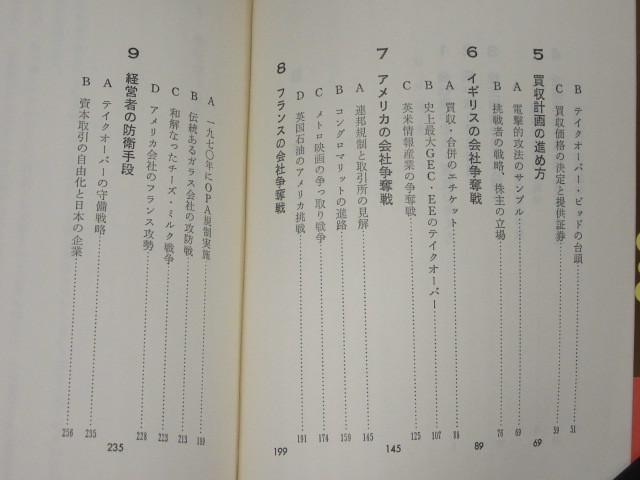 B テイクオーバー・ビッドの台頭 51
C 買収価格の決定と提供証券 59
5 買収計画の進め方 69
A 電撃的攻法のサンプル 69
B 挑戦者の戦略、株主の立場 76
6 イギリスの会社争奪戦 89
A 買収・合併のエチケット
B 史上最大GEC・EEのテイクオーバー 107
C 英米情報産業の争奪戦 125
7 アメリカの会社争奪戦 145
A 連邦規制と取引所の見解 145
B コングロマリットの進路 159
C メトロ映画の争っ取り戦争 174
D 英国石油のアメリカ挑戦 191
8 フランスの会社争奪戦 199
A 一九七〇年にOPA規制実施 199
B 伝統あるガラス会社の攻防戦 213
C 和解なったチーズ・ミルク戦争 223
D アメリカ会社のフランス攻勢 228
9 経営者の防衛手段 235
A テイクオーバーの守備戦略 235
B 資本取引の自由化と日本の企業 256